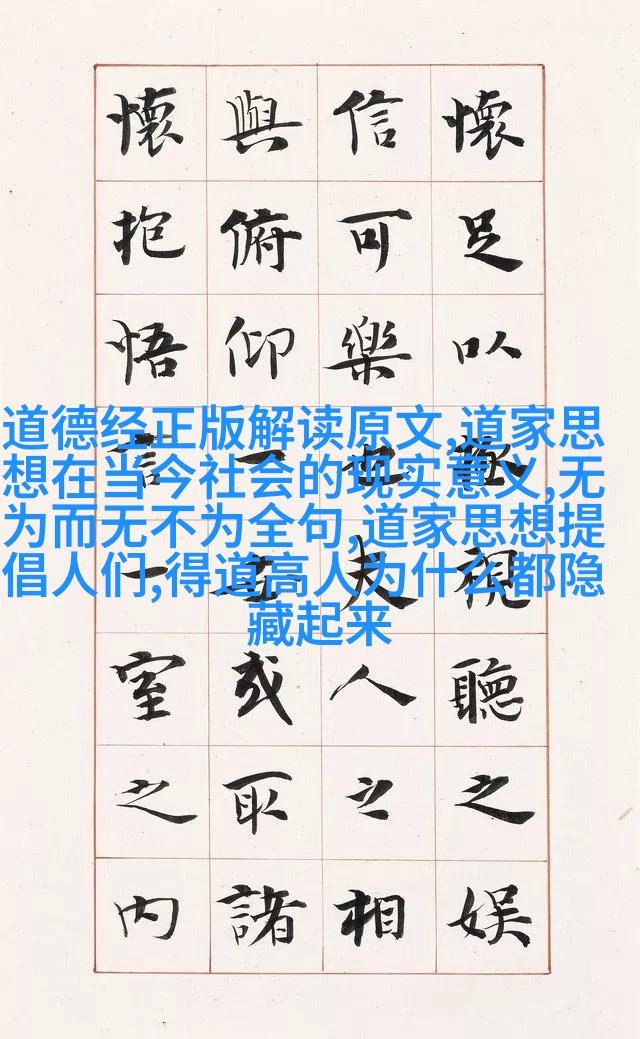 懷足以極視聽之娛
信可樂也夫人之相
與俯仰一世或取諸
懷抱悟言一室之內
道德经正版解读原文,道家思
想在当今社会的现实意义,无
为而无不为全句,道家思想提
倡人们,得道高人为什么都隐
藏起来